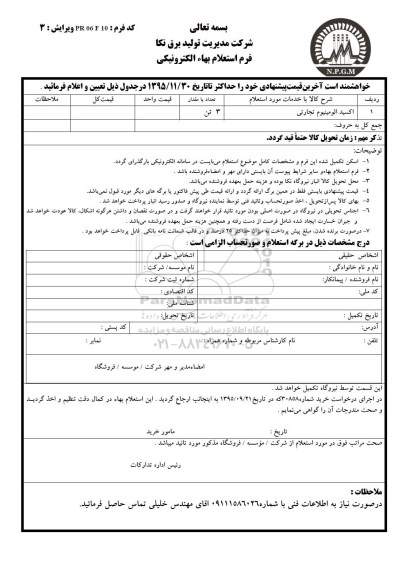 بسمه تعالی
کد فرم : PR 06 F 10 ویرایش : ۳
شرکت مدیریت تولید برق نکا
فرم استعلام بهاء الکترونیکی
N.P.G.M
خواهشمند است آخرین قیمت پیشنهادی خود را حداکثر تا تاریخ ۱۳۹۵/۱۱/۳۰ در جدول ذیل تعیین و اعلام فرمائید .
ردیف شرح کالا یا خدمات مورد استعلام تعداد یا مقدار قیمت واحد قیمت کل ملاحظات
۱ اکسید آلومینیوم تجارتی ۳ تن
جمع کل به حروف:
تذکر مهم : زمان تحویل کالا حتماً قید گردد.
توضیحات:
۱- اسکن تکمیل شده این فرم و مشخصات کامل موضوع استعلام می‌بایست در سامانه الکترونیکی بارگذاری گردد.
۲- فرم استعلام بهاء و سایر شرایط پیوست آن بایستی دارای مهر و امضاء فروشنده باشد .
۳- محل تحویل کالا انبار نیروگاه نکا بوده و هزینه حمل بعهده فروشنده می‌باشد.
۴- قیمت پیشنهادی بایستی فقط در همین برگه ارائه گردد و ارائه قیمت طی پیش فاکتور یا برگه های دیگر مورد قبول نمی‌باشد.
۵- بهای کالا پس از تحویل ، اخذ صورتحساب و تائید فنی توسط نماینده نیروگاه و صدور رسید انبار پرداخت خواهد شد .
۶- اجناس تحویلی در نیروگاه در صورت اصلی بودن مورد تائید قرار خواهند گرفت و در صورت نقصان و داشتن هرگونه اشکال، کالا عودت خواهد شد
و جبران خسارت ایجاد شده شامل فرصت از دست رفته و همچنین هزینه حمل بعهده فروشنده خواهد بود .
۷- درصورت برنده شدن، مبلغ پیش پرداخت به میزان حداکثر ۲۵ درصد و در قالب ضمانت نامه بانکی قابل پرداخت خواهد بود .
درج مشخصات ذیل در برگه استعلام و صورتحساب الزامی است :
اشخاص حقیقی اشخاص حقوقی
نام و نام خانوادگی : نام موسسه / شرکت :
نام فروشنده / پیمانکار: شماره ثبت شرکت :
کد ملی: کد اقتصادی :
شناسه ملی:
تاریخ تکمیل : تاریخ تحویل:
آدرس: کد پستی :
تلفن : نام کارشناس مربوطه و شماره همراه : نمابر :
ParsNamadData
پایگاه اطلاع رسانی مناقصه و مزایده
۰۲۱-۸۸۳۴۹۶۷۰-۵
امضاء مدیر و مهر شرکت / موسسه / فروشگاه
این قسمت توسط نیروگاه تکمیل خواهد شد .
در اجرای درخواست خرید شماره ۳۰۸۵۸ که در تاریخ ۱۳۹۵/۰۹/۲۱ به اینجانب ارجاع گردید . این استعلام بهاء در کمال دقت تنظیم و اخذ گردیده
و صحت مندرجات آن را گواهی می‌نمایم .
تاریخ : مامور خرید
صحت مراتب فوق در مورد استعلام از شرکت / مؤسسه / فروشگاه مذکور مورد تائید میباشد .
رئیس اداره تدارکات
ملاحظات :
درصورت نیاز به اطلاعات فنی با شماره ۰۹۱۱۱۵۸۶۰۲۶ آقای مهندس خلیلی تماس حاصل فرمائید.